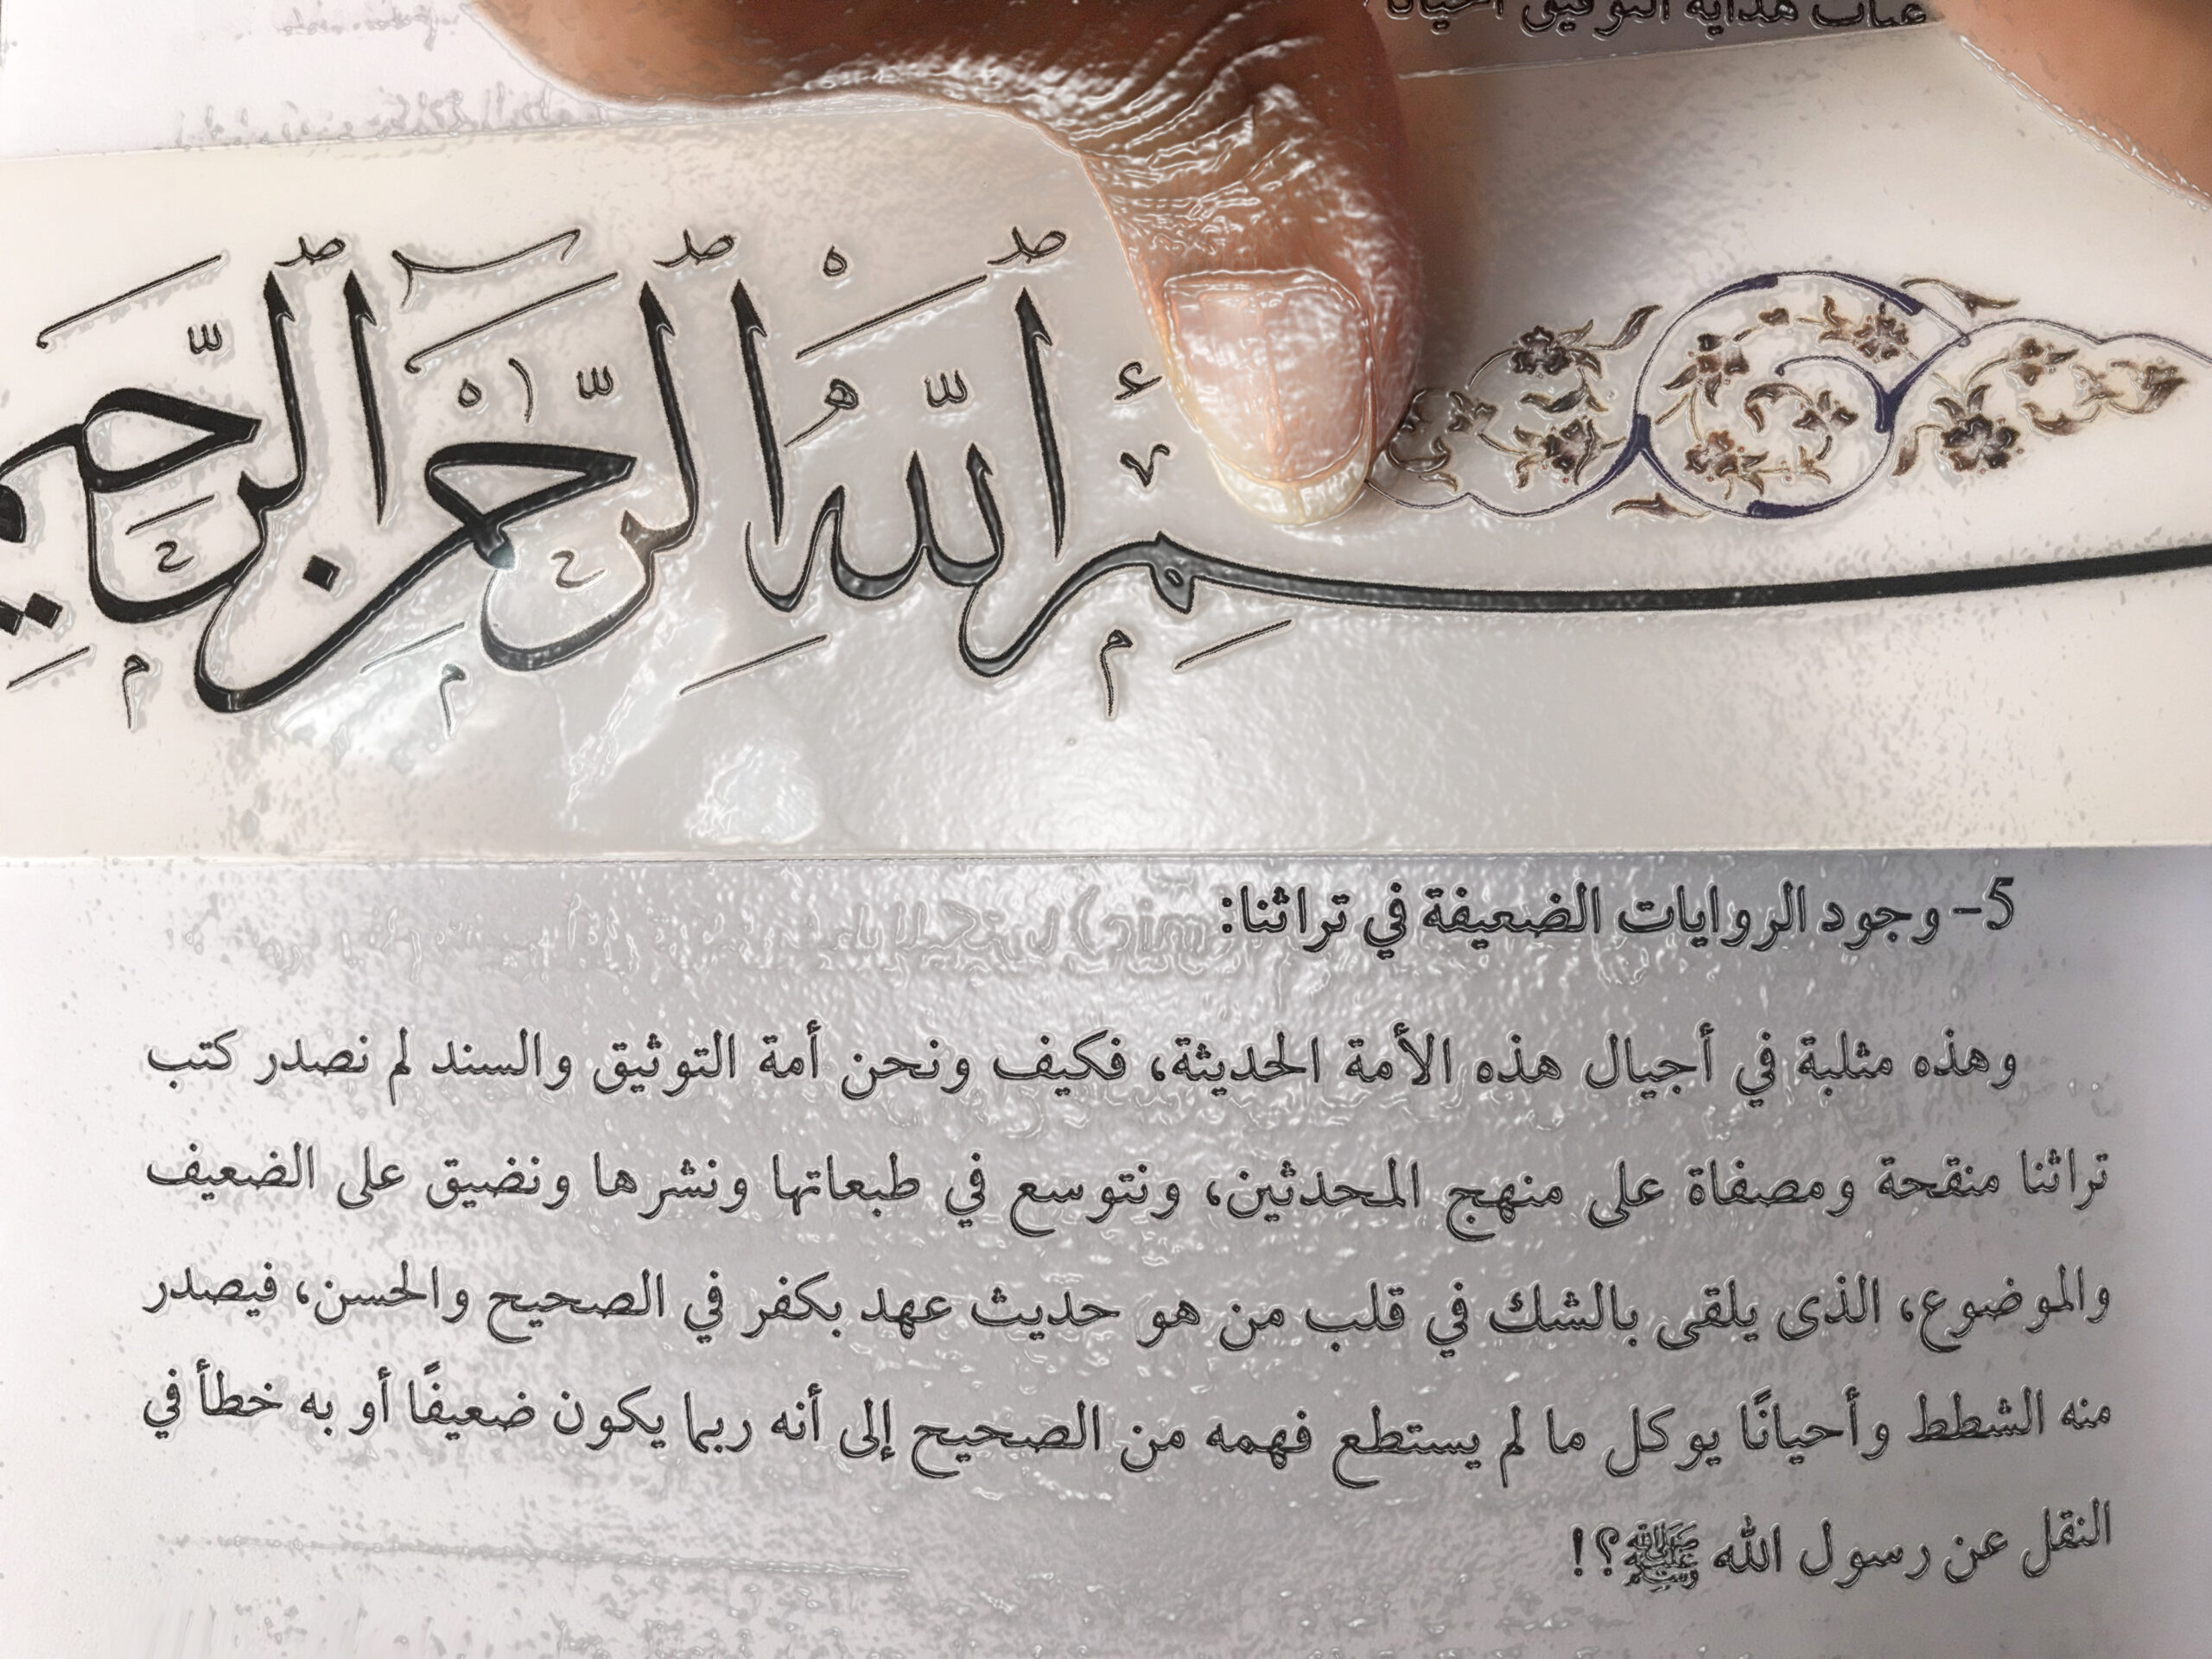 هداية التوفيق أحيانًا
بسم الله الرحمن الرحيم
5- وجود الروايات الضعيفة في تراثنا:
وهذه مثلبة في أجيال هذه الأمة الحديثة، فكيف ونحن أمة التوثيق والسند لم نصدر كتب
تراثنا منقحة ومصفاة على منهج المحدثين، ونتوسع في طبعاتها ونشرها ونضيق على الضعيف
والموضوع، الذى يلقى بالشك في قلب من هو حديث عهد بكفر في الصحيح والحسن، فيصدر
منه الشطط وأحيانًا يوكل ما لم يستطع فهمه من الصحيح إلى أنه ربما يكون ضعيفًا أو به خطأ في
النقل عن رسول الله ﷺ؟!